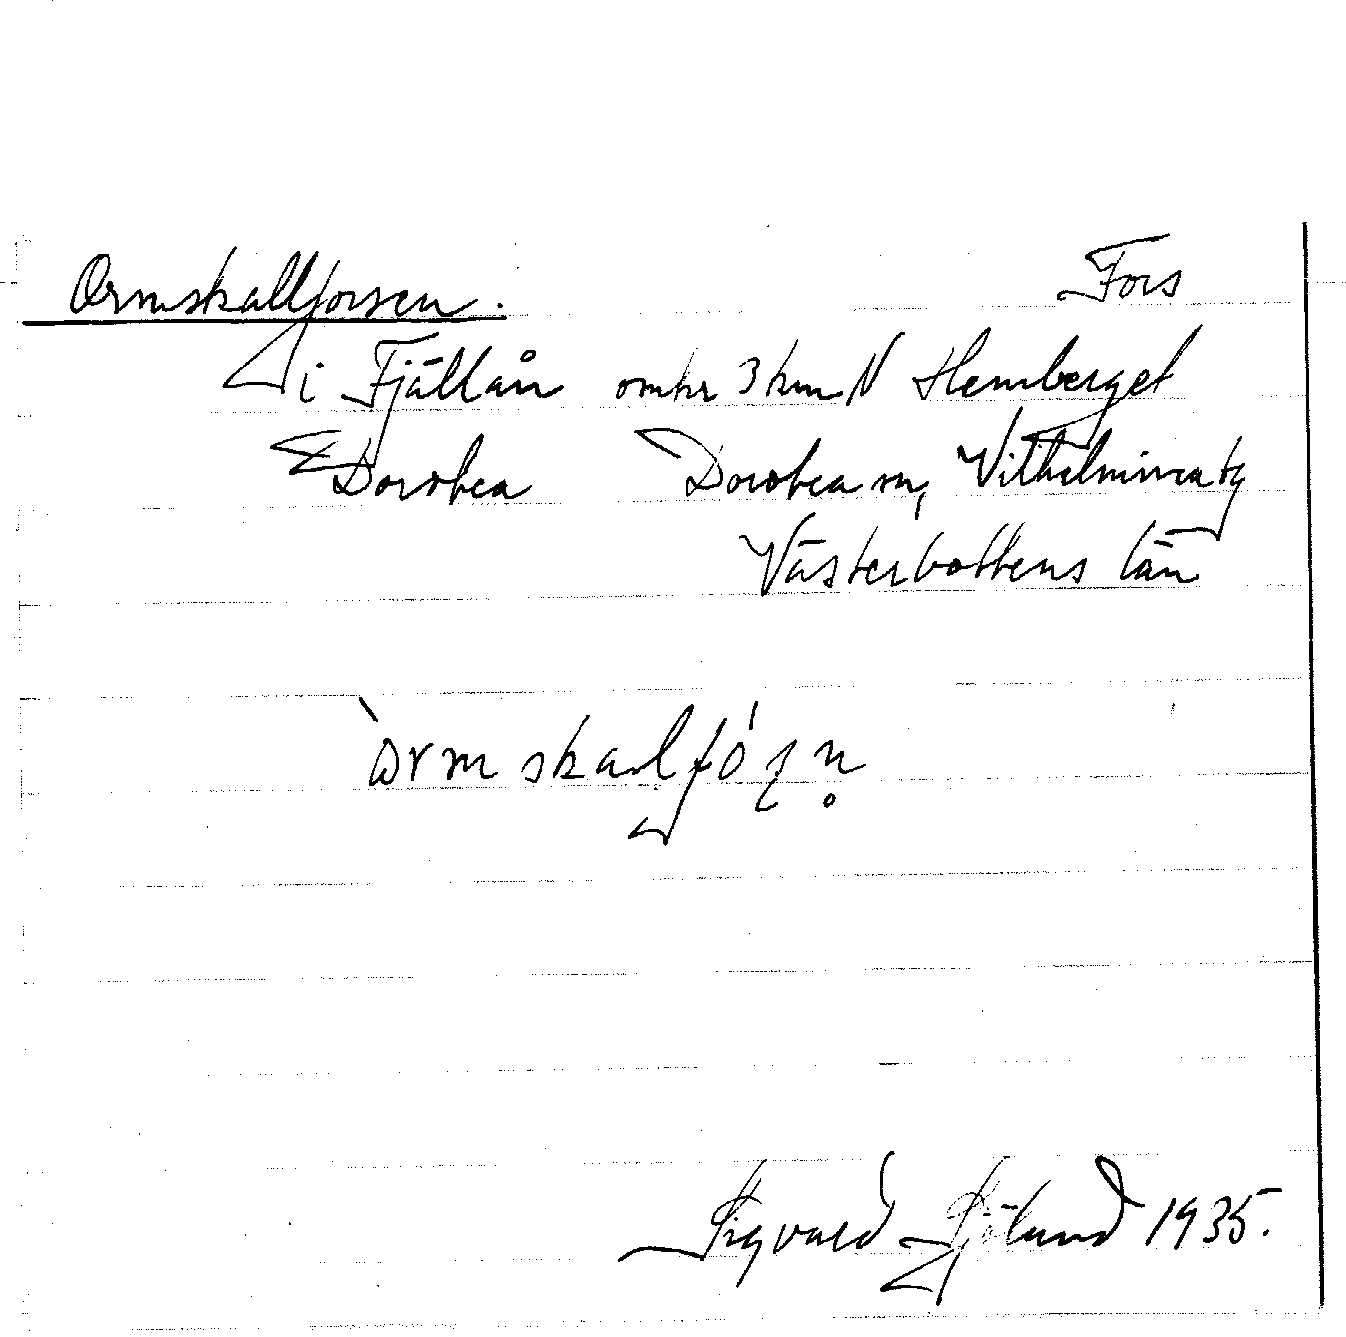 Ormskallforsen. Fors
i Fjällån omkr 3 km N Hemberget
Dorotea Dorotea sn, Vilhelmina tg
Västerbottens län
`ɷrmskalfó̱ṣn̥
Sigvard Sjölund 1935.